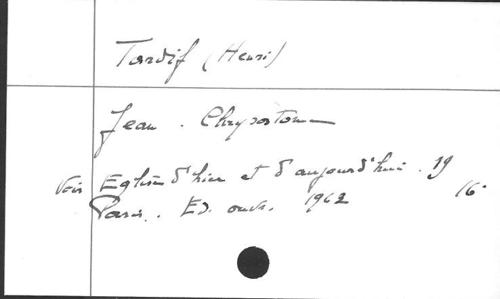 Tardif (Henri)
Jean . Chrysostome
Voir Eglise d'hier et d'aujourd'hui . 19
Paris . Ed. ouvr. 1962 16°